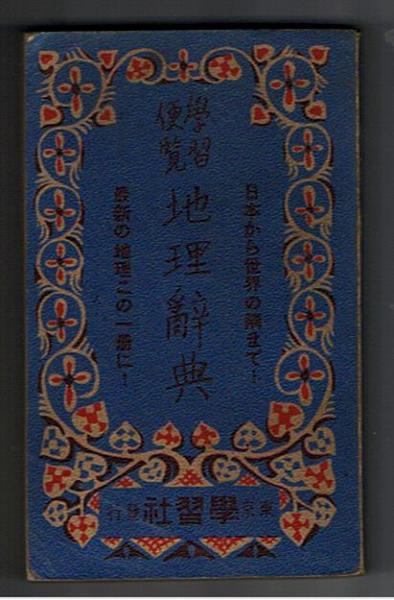 日本から世界の隅まで!
學習
便覧
地理辭典
最新の地理この一冊に!
東京 學習社 發行